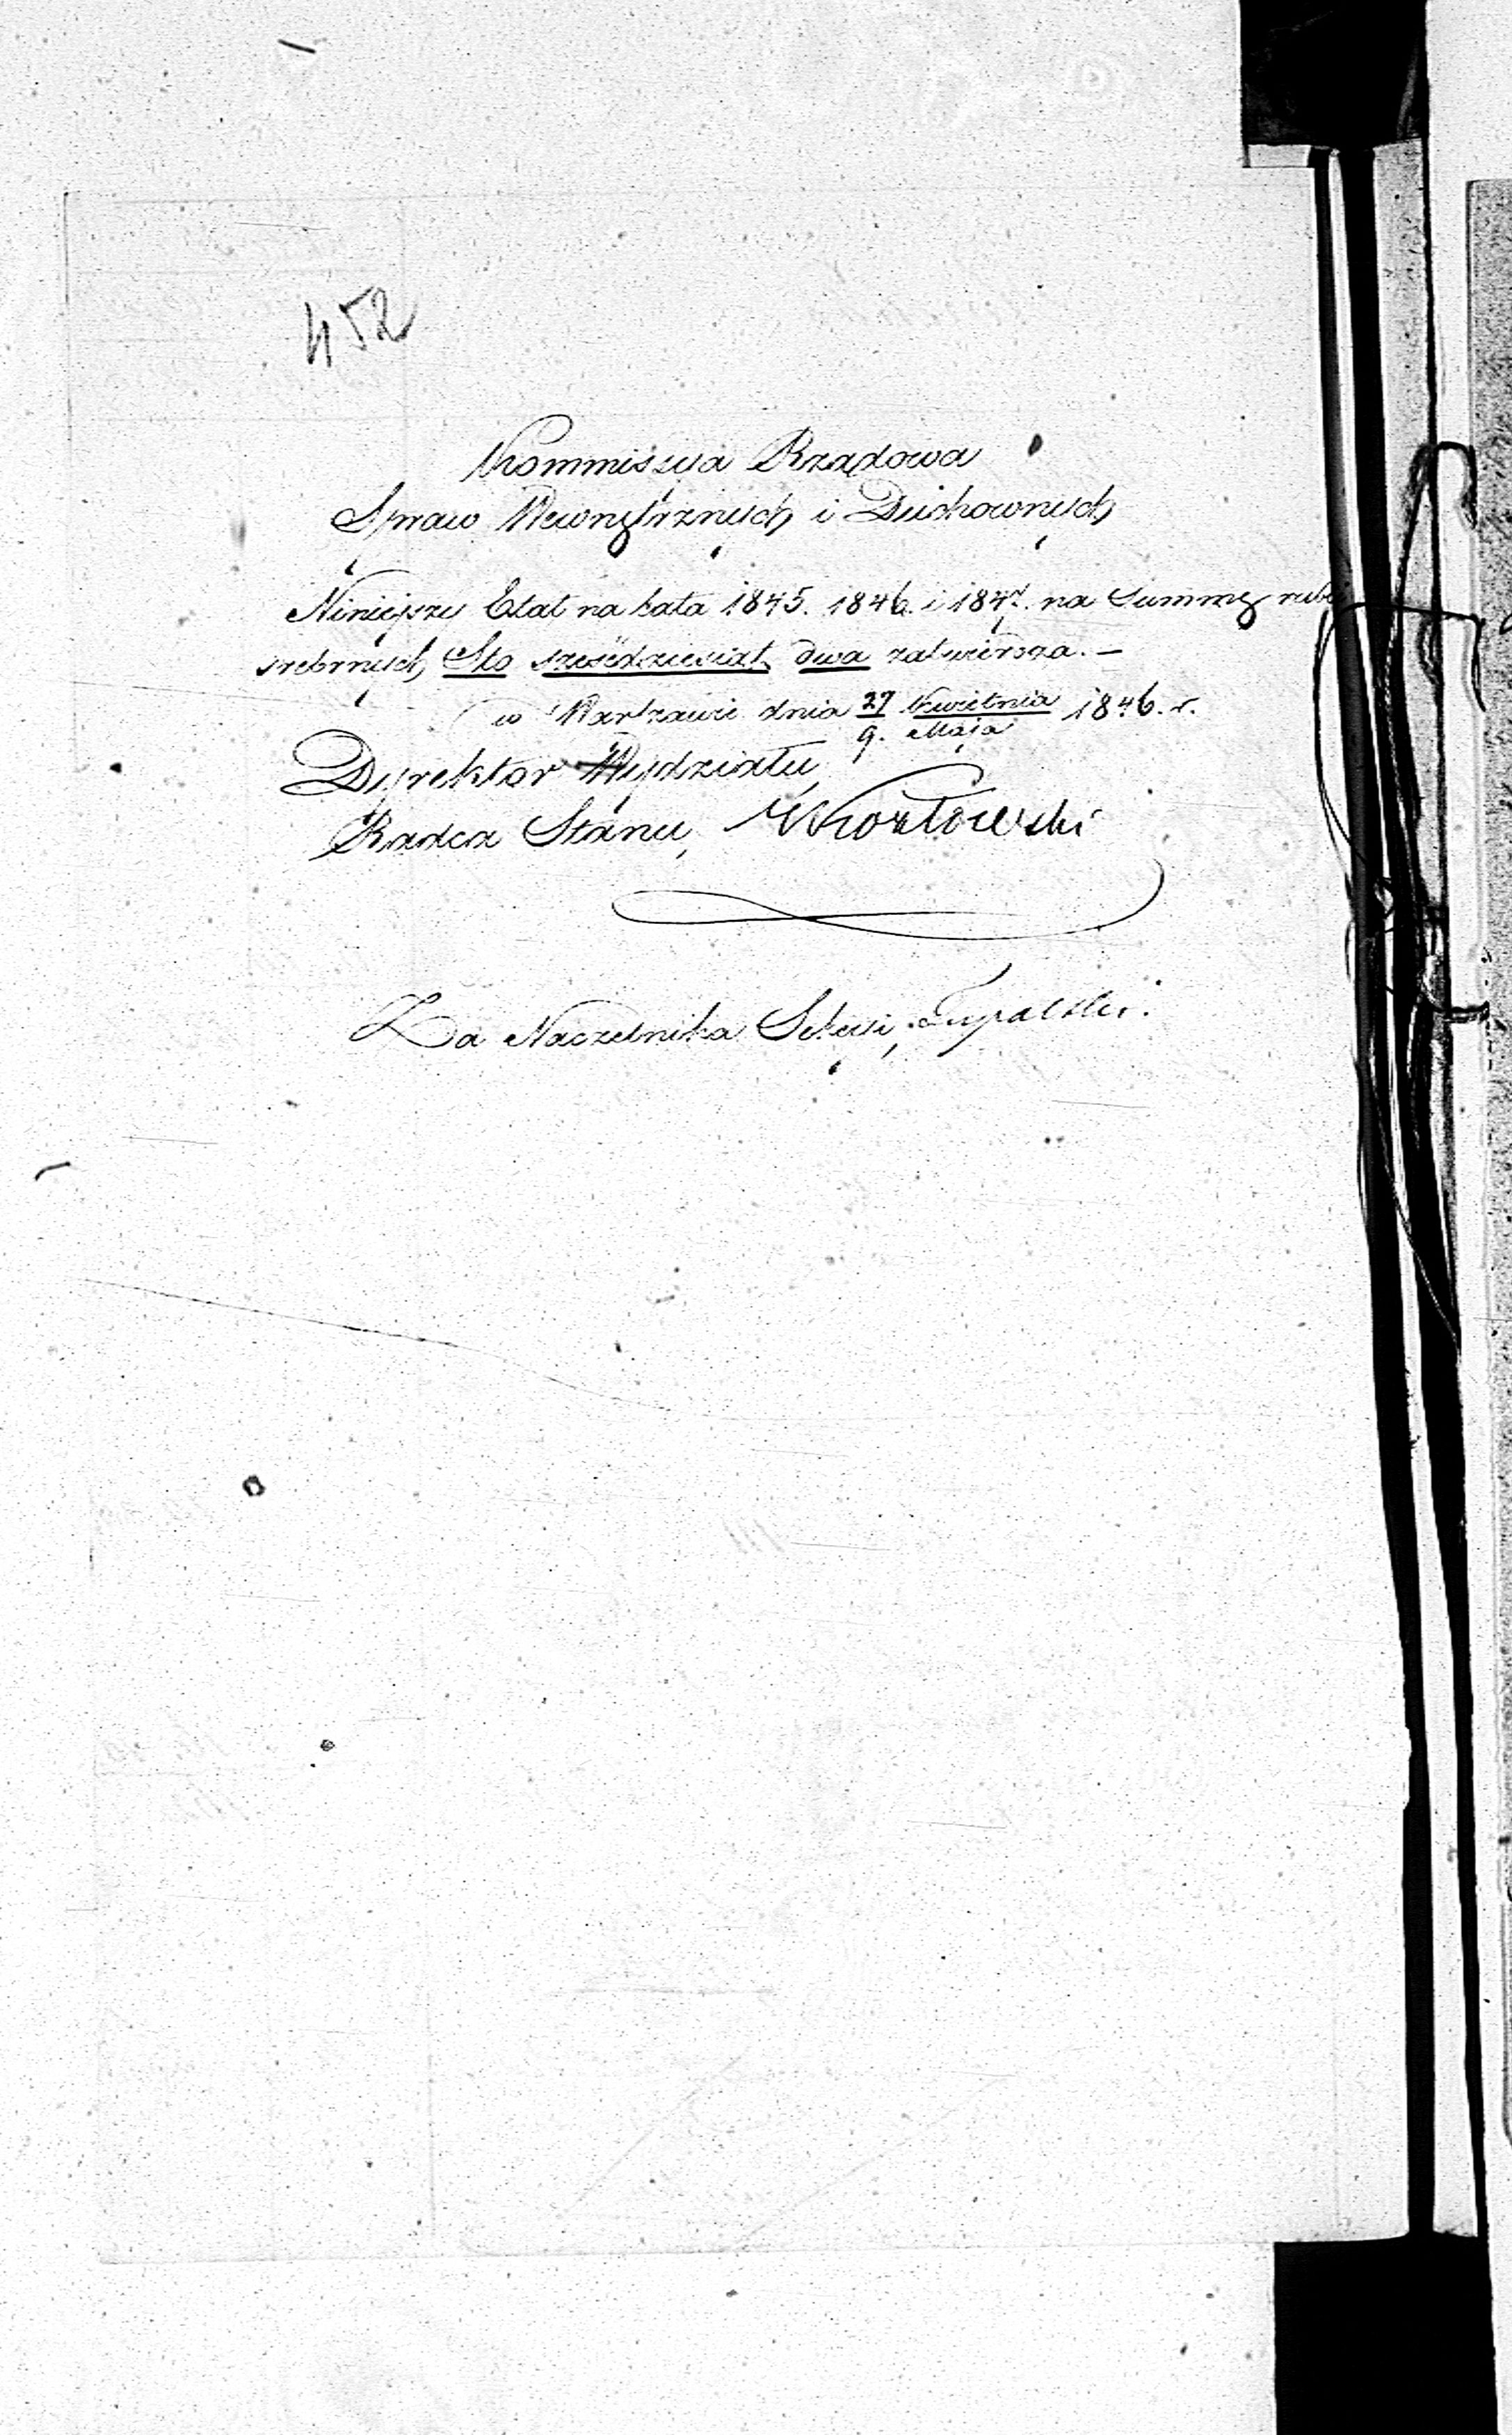 452
Kommissya Rządowa
Spraw Wewnętrznych i Duchownych
Niniejszy Etat na lata 1845. 1846. i 1847. na Summę rub
srebrnych Sto sześćdziesiąt dwa zatwierdza. —
w Warszawie dnia 27 Kwietnia / 9. Maja 1846. r.
Dyrektor Wydziału
Radca Stanu, Kozłowski
Za Naczelnika Sekcii,